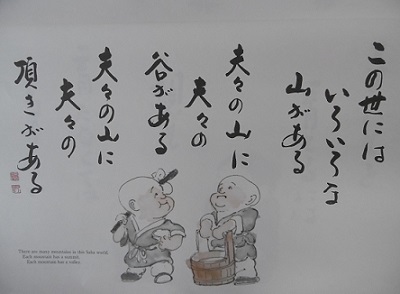 この世には
いろいろな
山がある
夫々の山に
夫々の
谷がある
夫々の山に
夫々の
頂きがある
There are many mountains in this world.
Each mountain has a
Each mountain has a valley.